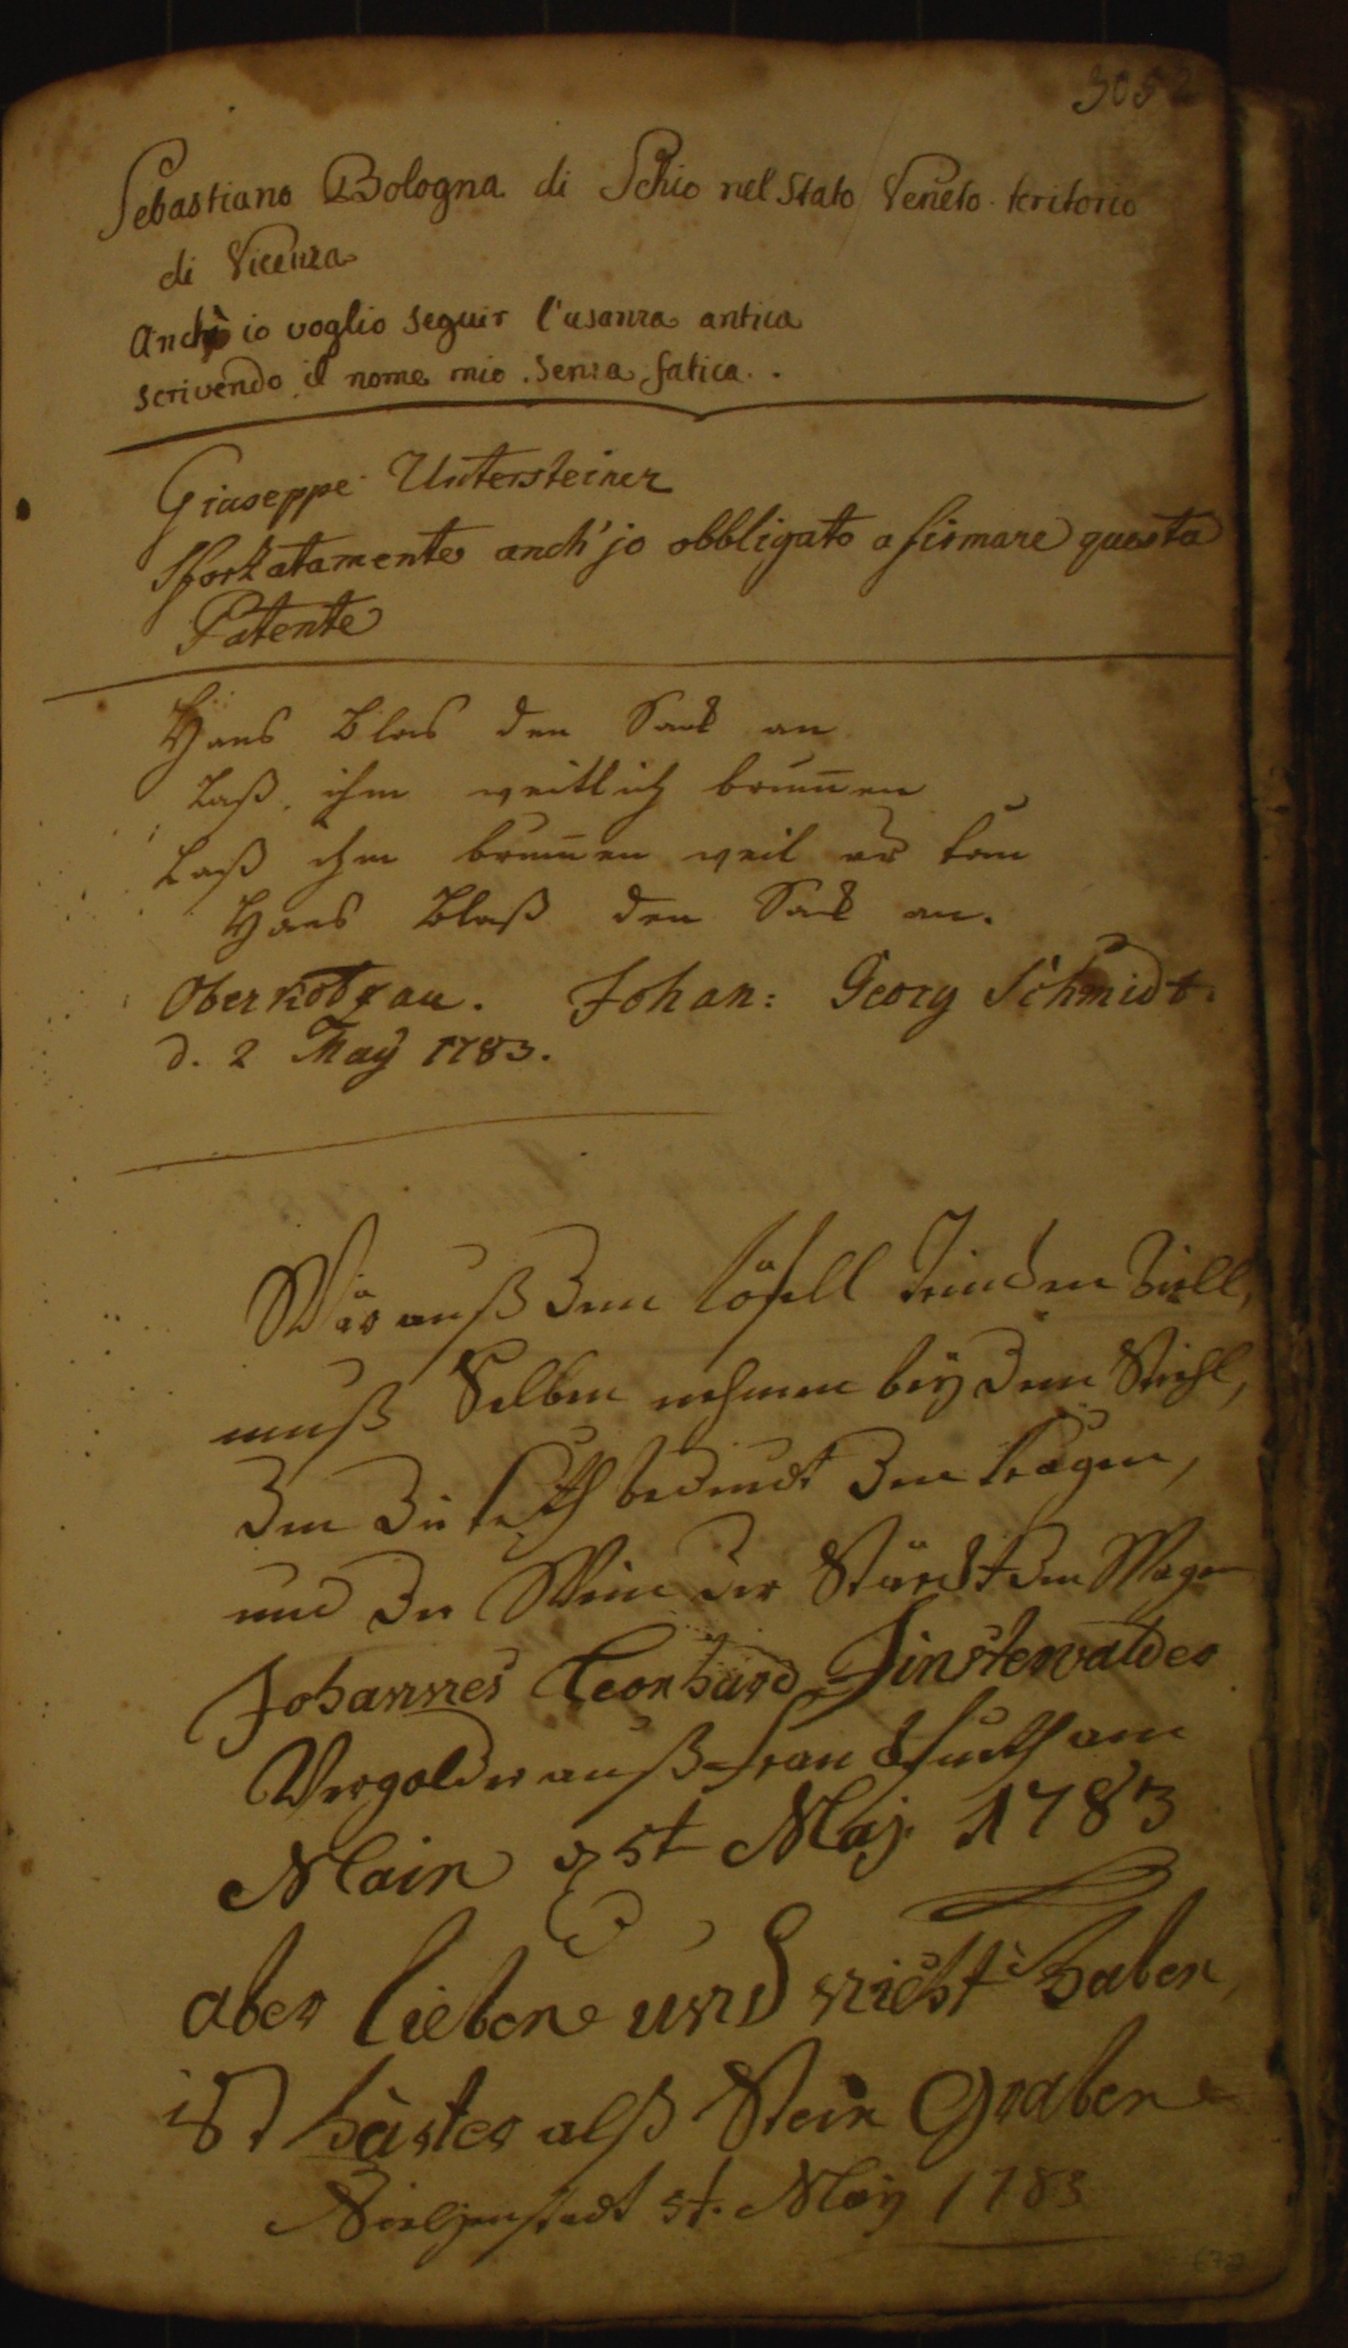 3052
Sebastiano Bologna di Schio nel Stato Veneto teritorio
di Vicenza
Anch io voglio seguir l'usanza antica
scrivendo il nome mio senza fatica.
Giuseppe Untersteiner
Sforzatamente anch'jo obbligato a firmare questa
Patente
Hans Blas den Sack an
Laß ihm weitlich brum̄en
Laß ihm brum̄en weil er kan
Hans Blaß den Sack an.
Oberkotzau. Johan: Georg Schmidt.
d. 2 Maÿ 1783.
Wër auß dem Löfell will,
muß Selben nehmen beÿ dem Stiehl,
den
und der Wein der Stärckt den Magen
Johannes Leonhard Finsterwalder
Vergolder auß Franckfurth am
Main 5t Maj. 1783
aber lieben und nicht haben
ist härter alß Stein Graben
5t. Maÿ 1783